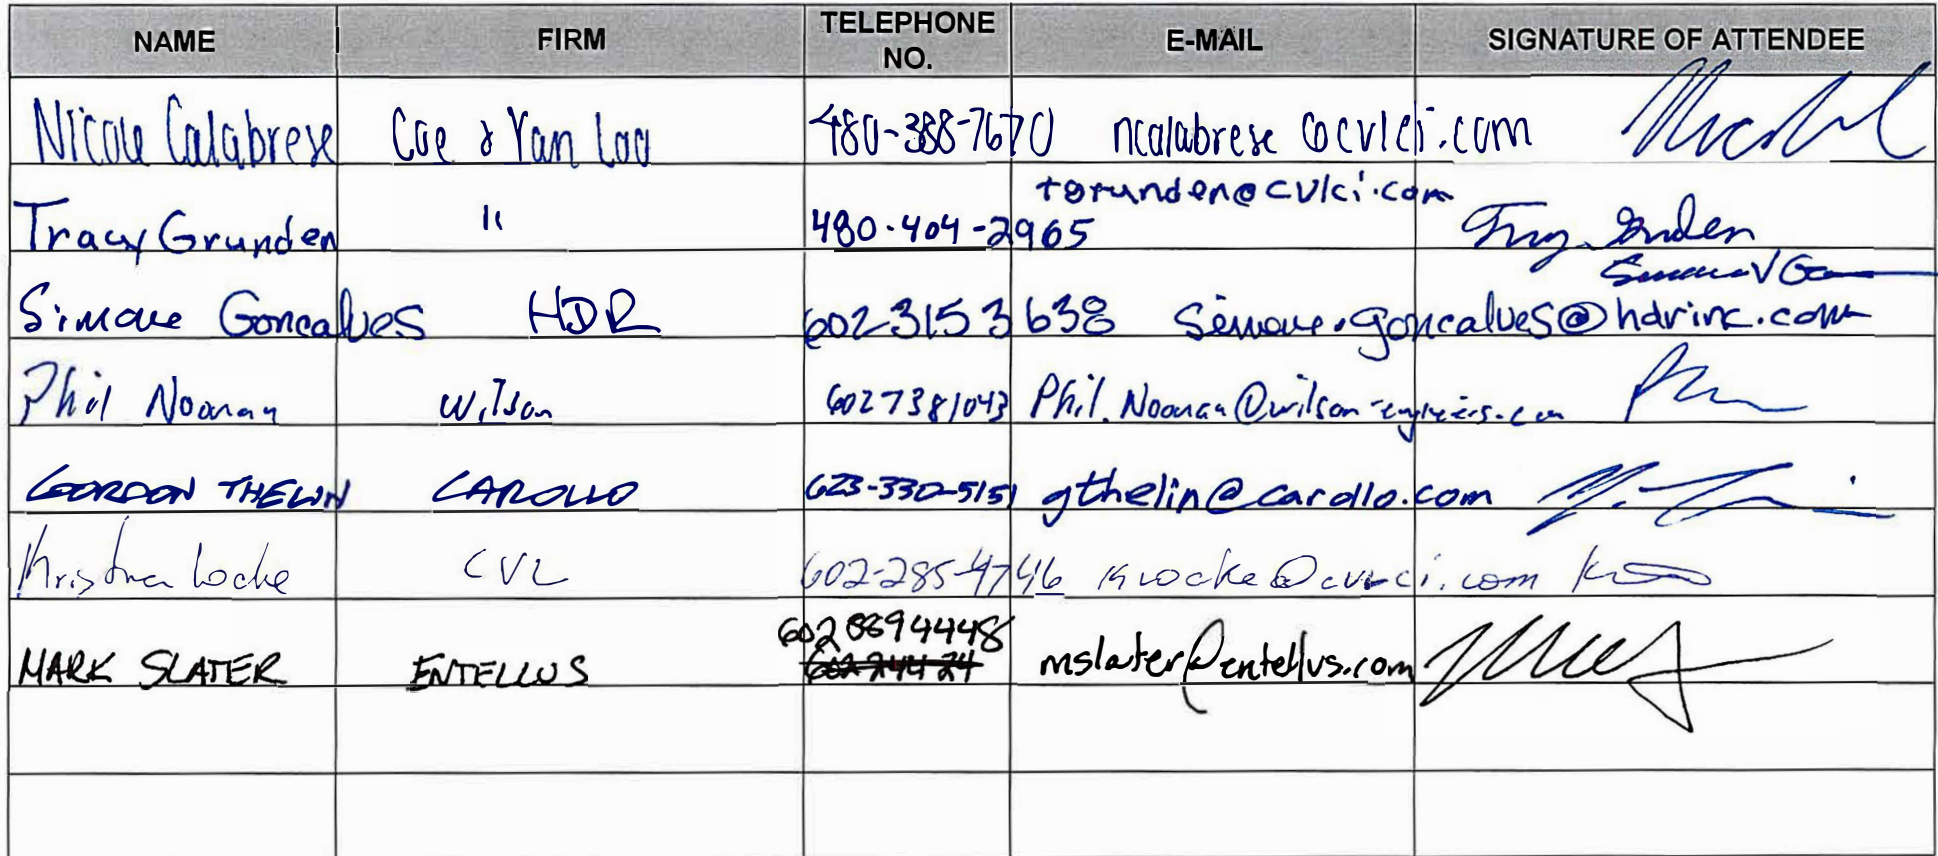 NAME FIRM TELEPHONE NO. E-MAIL SIGNATURE OF ATTENDEE
Nicole Calabrese Coe & Van Loo 480-388-7670 ncalabrese@cvlci.com
Tracy Grunden " 480-404-2965 tgrunden@cvlci.com Tracy Grunden
Simone Goncalves HDR 602 315 3638 simone.goncalves@hdrinc.com
Phil Noonan Wilson 602 738 1043 Phil.Noonan@wilson-engineers.com
GORDON THELIN CAROLLO 623-330-5151 gthelin@carollo.com
Kristina Locke CVL 602-285-4746 klocke@cvlci.com
MARK SLATER ENTELLUS 602 889 4448 mslater@entellus.com